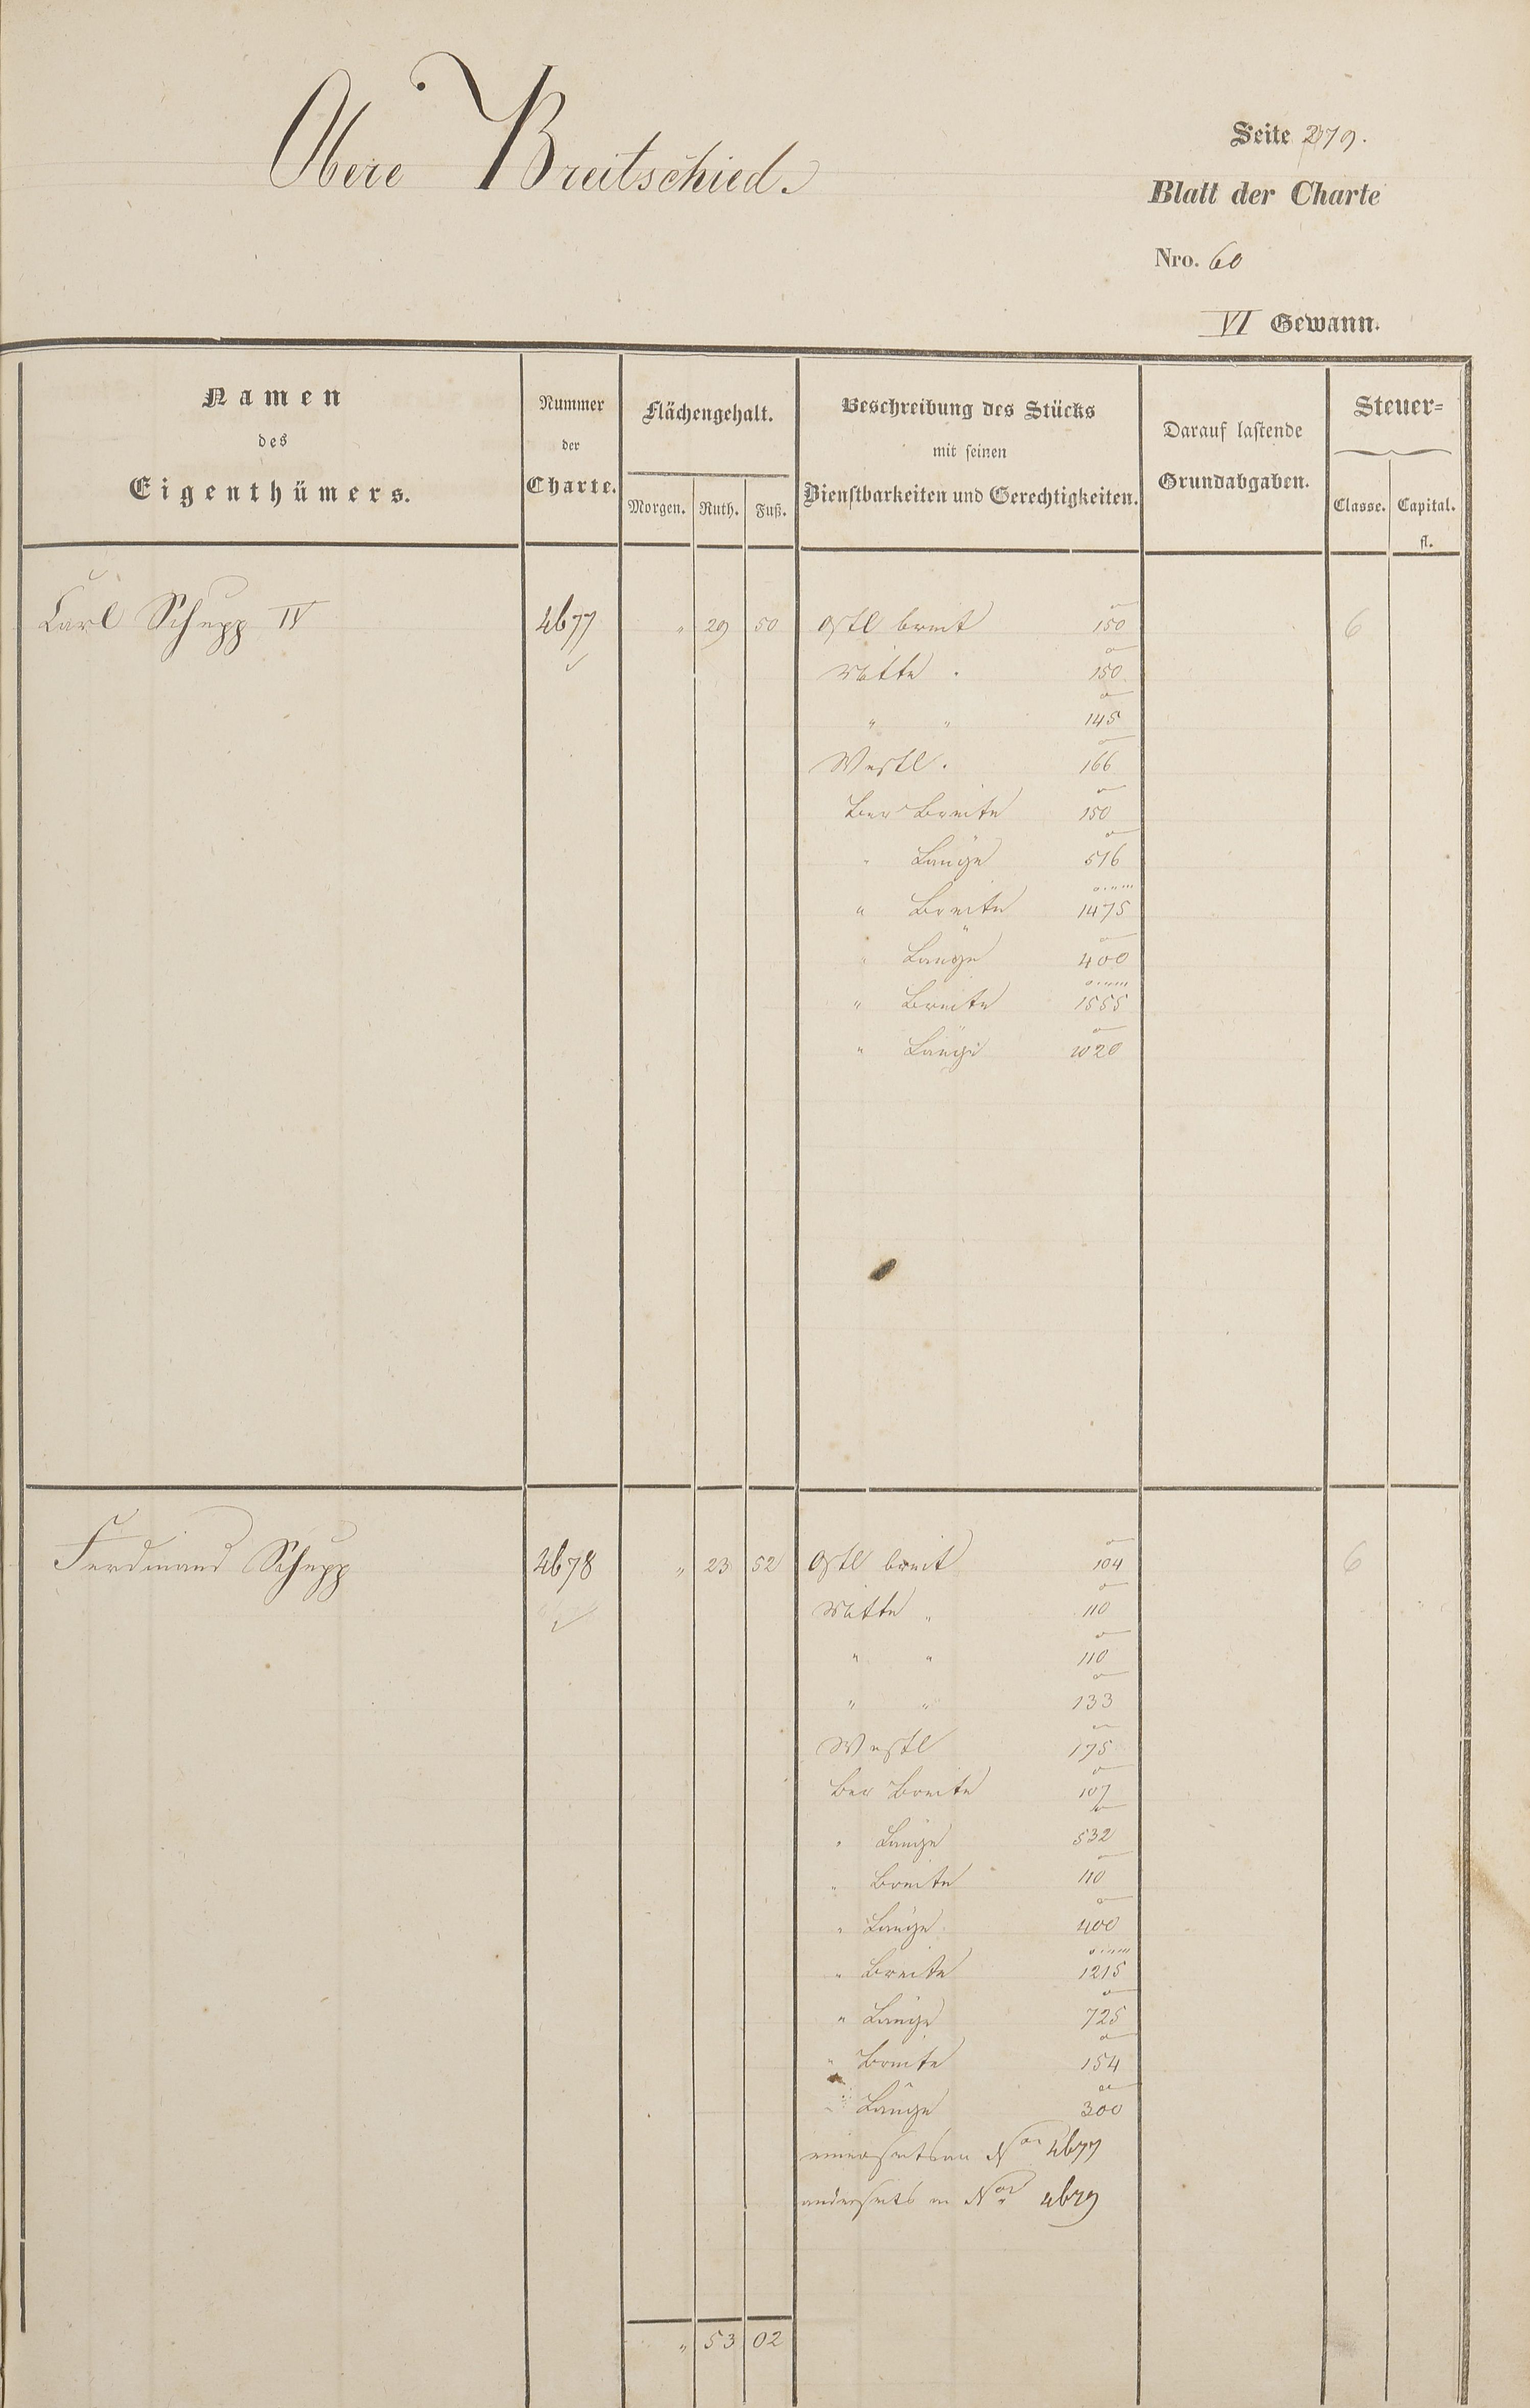 Obere Breitschied.
Seite 279.
Blatt der Charte
Nro. 60
VI Gewann.
Namen
des
Eigenthümers.
Nummer
der
Charte.
Flächengehalt.
Morgen. Ruth. Fuß.
Beschreibung des Stücks
mit seinen
Dienstbarkeiten und Gerechtigkeiten.
Darauf lastende
Grundabgaben.
Steuer=
Classe. Capital.
fl.
Carl Schupp IV 4677 " 29 50 Ostl breit 150 6
Mitte . 150
" " 145
Westl. 166
Ber Breite 150
" Länge 516
" Breite 1475
" Länge 400
" Breite 1555
" Länge 1020
Ferdinand Schupp 4678 " 23 52 Ostl breit 104 6
Mitte " 110
" " 110
" " 133
Westl 175
Ber Breite 107
" Länge 532
" Breite 110
" Länge 400
" Breite 1215
" Länge 725
" Breite 154
" Länge 300
einerseits an No 4677
anderseits an No 4679
" 53 02